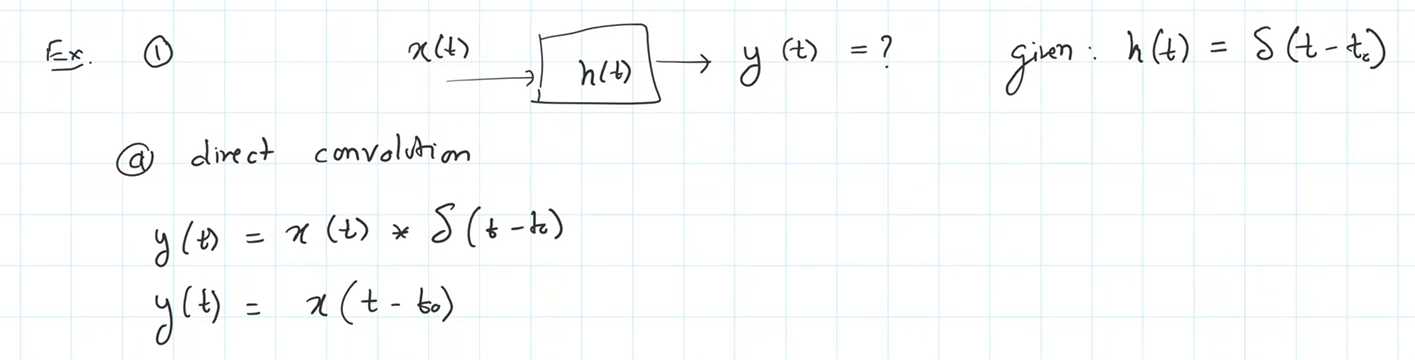 Ex. ① x(t) → h(t) → y(t) = ? given: h(t) = δ(t-t₀)
ⓐ direct convolution
y(t) = x(t) * δ(t-t₀)
y(t) = x(t-t₀)